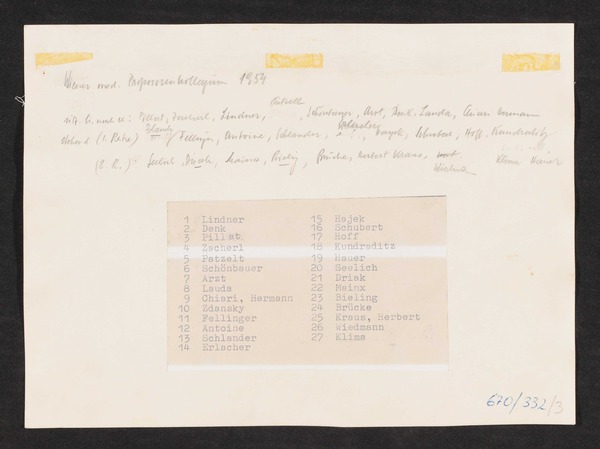 Wiener med. Professorenkollegium 1954
Patzelt
sitz. li. nach re: Pillat, Zacherl, Lindner, Schönbauer, Arzt, Denk, Lauda, Chiari Hermann
Zdansky Erlacher
stehend (1. Reihe) Fellinger, Antoine, Schlander, Hajek, Schubert, Hoff, Kundratitz
(2. R.) Seelich, Bieling, Brücke, Herbert Kraus, Klima Hauer
Wiedmann
1 Lindner
2 Denk
3 Pillat
4 Zacherl
5 Patzelt
6 Schönbauer
7 Arzt
8 Lauda
9 Chiari, Hermann
10 Zdansky
11 Fellinger
12 Antoine
13 Schlander
14 Erlacher
15 Hajek
16 Schubert
17 Hoff
18 Kundraditz
19 Hauer
20 Seelich
21 Driak
22 Mainx
23 Bieling
24 Brücke
25 Kraus, Herbert
26 Wiedmann
27 Klima
670/332/3